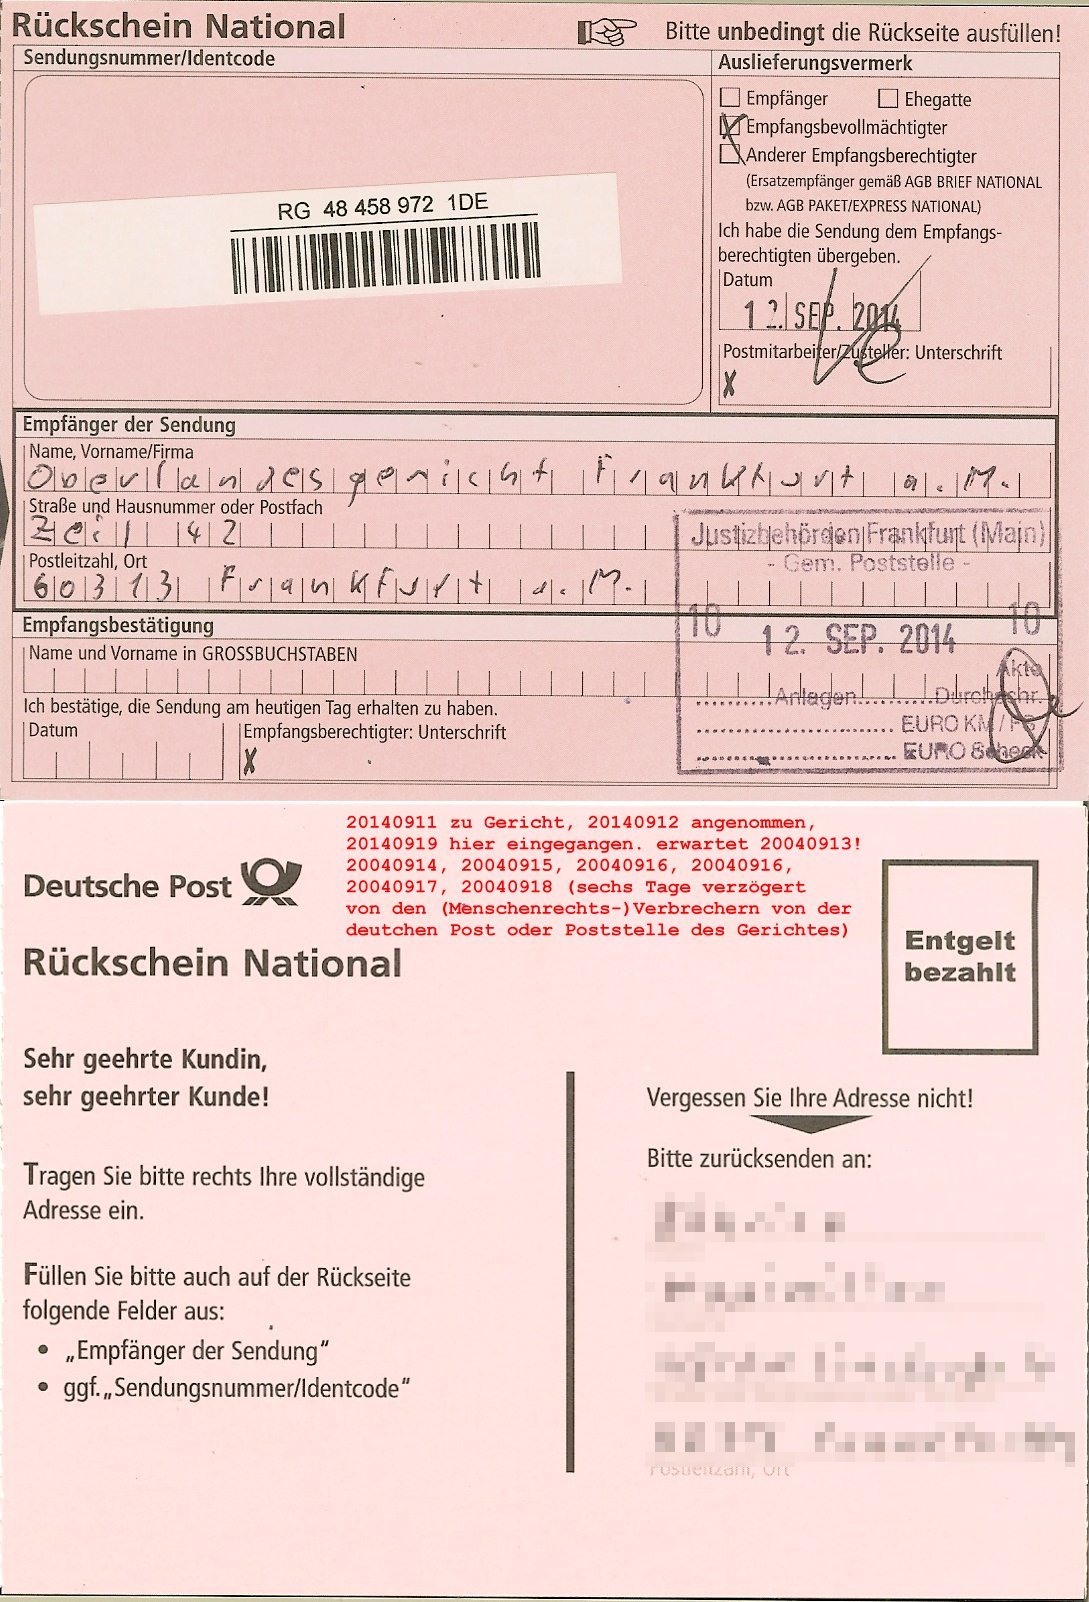 Rückschein National
Bitte unbedingt die Rückseite ausfüllen!
Sendungsnummer/Identcode
RG 48 458 972 1DE
Auslieferungsvermerk
Empfänger Ehegatte
X Empfangsbevollmächtigter
Anderer Empfangsberechtigter
(Ersatzempfänger gemäß AGB BRIEF NATIONAL
bzw. AGB PAKET/EXPRESS NATIONAL)
Ich habe die Sendung dem Empfangs-
berechtigten übergeben.
Datum
12. SEP. 2014
Postmitarbeiter/Zusteller: Unterschrift
X
Empfänger der Sendung
Name, Vorname/Firma
Oberlandesgericht Frankfurt a.M.
Straße und Hausnummer oder Postfach
Zeil 42
Postleitzahl, Ort
60313 Frankfurt a.M.
Justizbehörden Frankfurt (Main)
- Gem. Poststelle -
10 10
12. SEP. 2014
Akte
..........Anlagen..........Durchschr.
EURO KM / FS
EURO Scheck
Empfangsbestätigung
Name und Vorname in GROSSBUCHSTABEN
Ich bestätige, die Sendung am heutigen Tag erhalten zu haben.
Datum
Empfangsberechtigter: Unterschrift
X
20140911 zu Gericht, 20140912 angenommen,
20140919 hier eingegangen. erwartet 20040913!
20040914, 20040915, 20040916, 20040916,
20040917, 20040918 (sechs Tage verzögert
von den (Menschenrechts-)Verbrechern von der
deutchen Post oder Poststelle des Gerichtes)
Deutsche Post
Rückschein National
Entgelt
bezahlt
Sehr geehrte Kundin,
sehr geehrter Kunde!
Tragen Sie bitte rechts Ihre vollständige
Adresse ein.
Füllen Sie bitte auch auf der Rückseite
folgende Felder aus:
• „Empfänger der Sendung"
• ggf. „Sendungsnummer/Identcode"
Vergessen Sie Ihre Adresse nicht!
Bitte zurücksenden an:
Postleitzahl, Ort